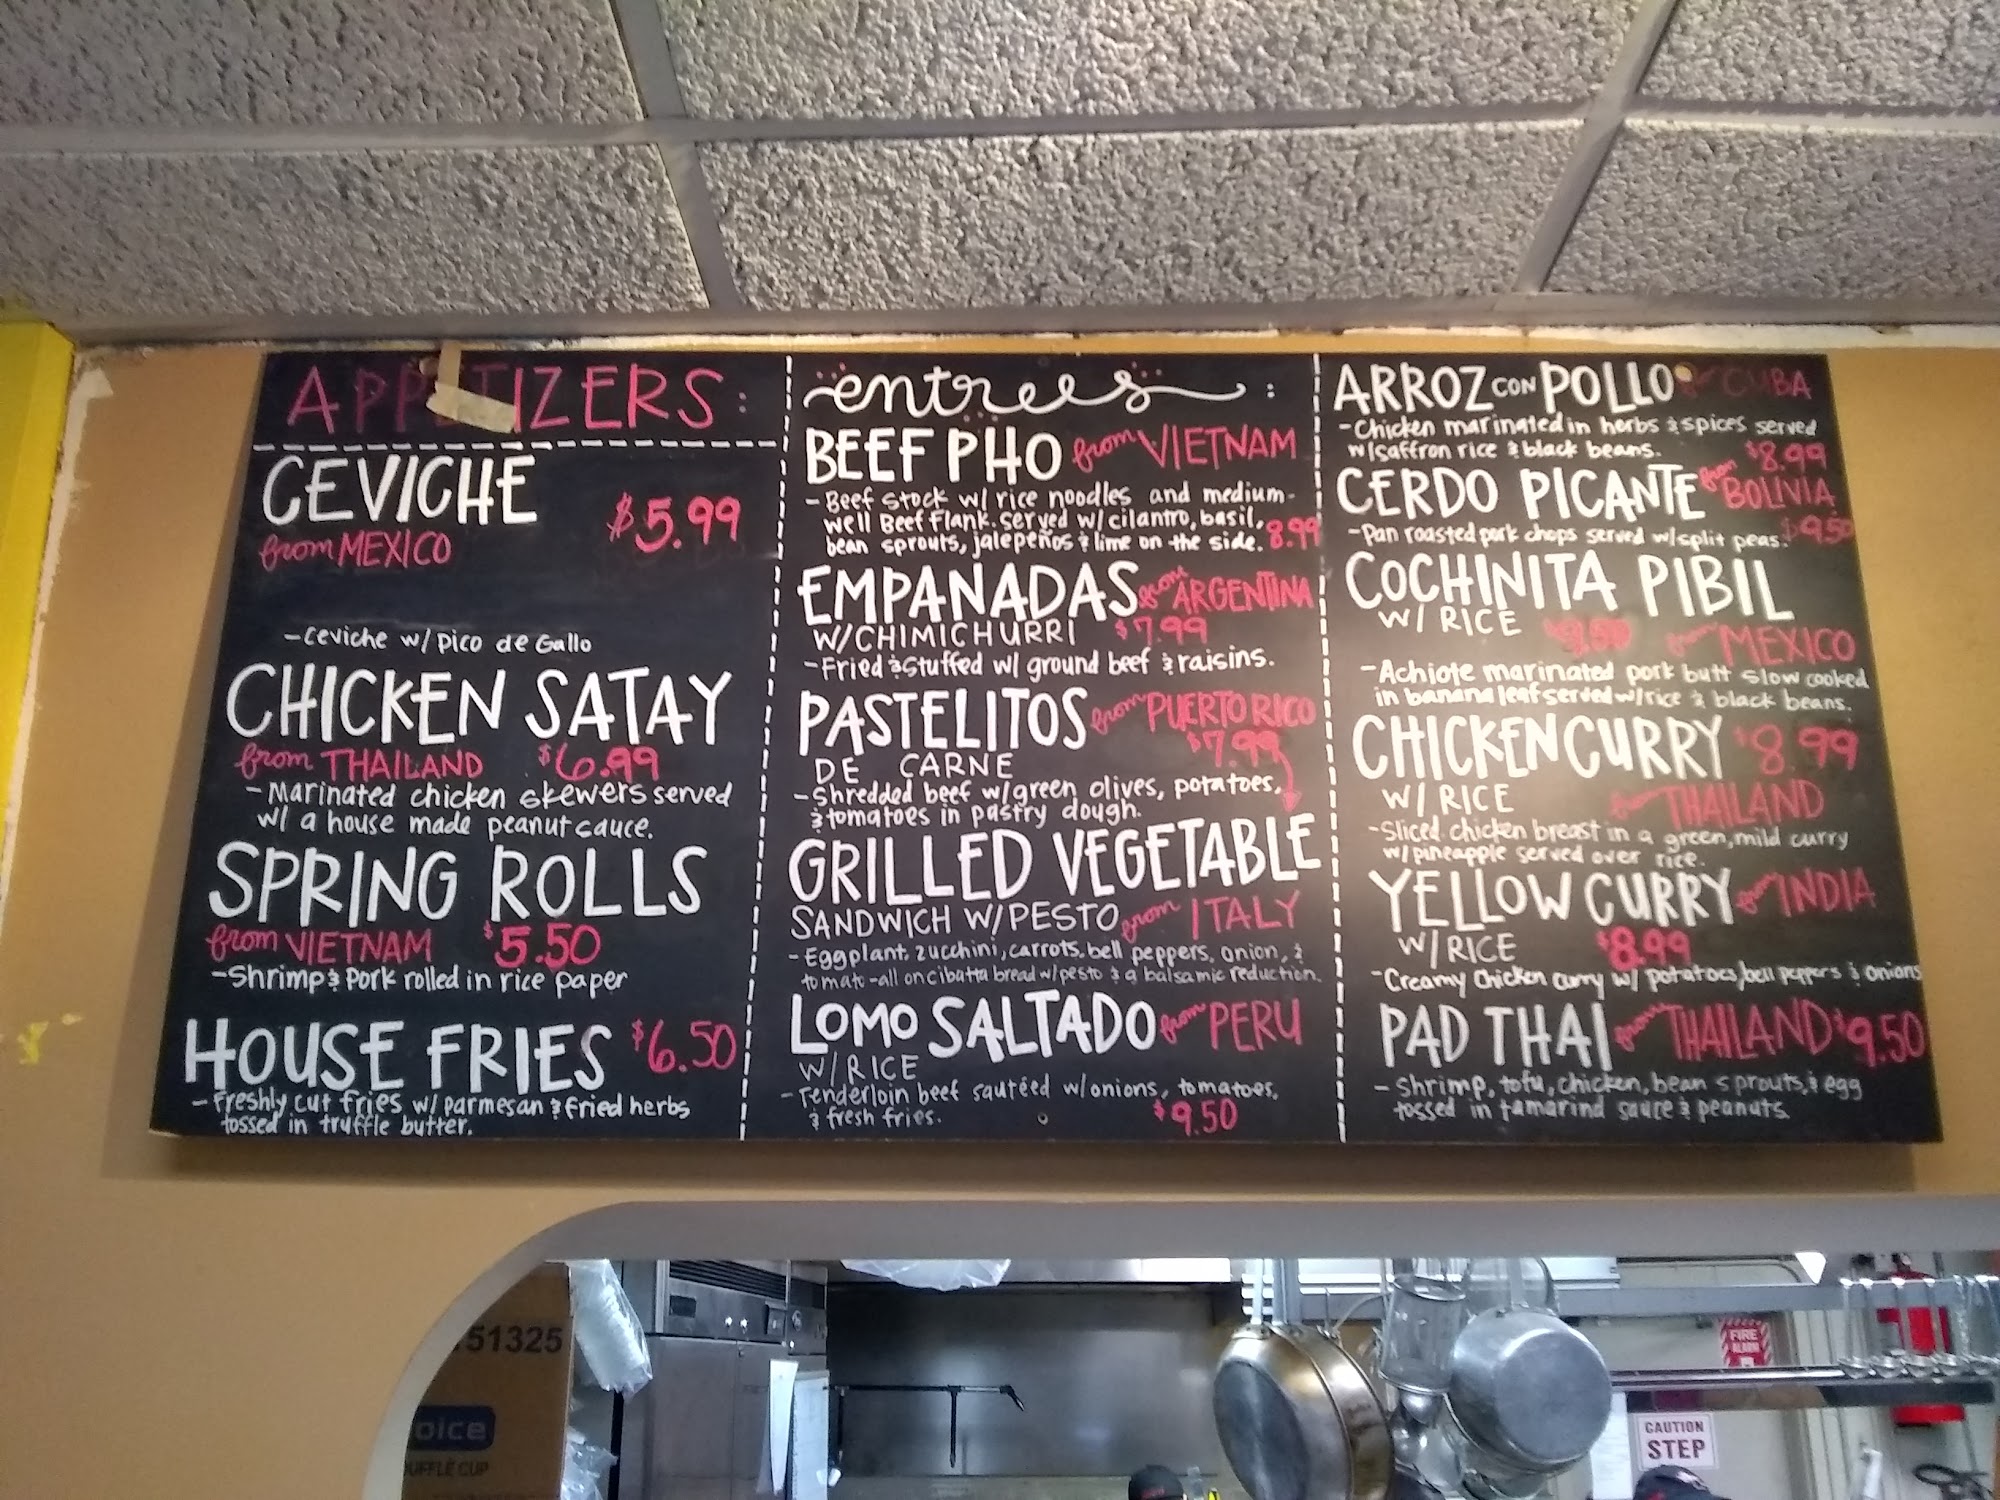 APPETIZERS:
CEVICHE
from MEXICO
$5.99
-Ceviche w/ Pico de Gallo
CHICKEN SATAY
from THAILAND $6.99
-Marinated chicken skewers served
w/ a house made peanut sauce.
SPRING ROLLS
from VIETNAM $5.50
-Shrimp & Pork rolled in rice paper
HOUSE FRIES $6.50
-Freshly cut fries w/ parmesan & fried herbs
tossed in truffle butter.
entrees:
BEEF PHO from VIETNAM
-Beef stock w/ rice noodles and medium-
well Beef Flank. served w/ cilantro, basil,
bean sprouts, jalepeños & lime on the side. 8.99
EMPANADAS from ARGENTINA
W/CHIMICHURRI $7.99
-Fried & Stuffed w/ ground beef & raisins.
PASTELITOS from PUERTO RICO
DE CARNE $7.99
-Shredded beef w/green olives, potatoes,
& tomatoes in pastry dough.
GRILLED VEGETABLE
SANDWICH W/PESTO from ITALY
-Eggplant, zucchini, carrots, bell peppers, onion, &
tomato-all on cibatta bread w/pesto & a balsamic reduction.
LOMO SALTADO from PERU
W/RICE
-Tenderloin beef sautéed w/onions, tomatoes,
& fresh fries. $9.50
ARROZ CON POLLO from CUBA
-Chicken marinated in herbs & spices served
w/saffron rice & black beans. $8.99
CERDO PICANTE from BOLIVIA
-Pan roasted pork chops served w/split peas. $9.50
COCHINITA PIBIL
W/ RICE $9.50 from MEXICO
-Achiote marinated pork butt slow cooked
in banana leaf served w/rice & black beans.
CHICKEN CURRY $8.99
W/ RICE from THAILAND
-Sliced chicken breast in a green, mild curry
w/pineapple served over rice.
YELLOW CURRY from INDIA
W/RICE $8.99
-Creamy Chicken curry w/ potatoes, bell peppers & onions
PAD THAI from THAILAND $9.50
-Shrimp, tofu, chicken, bean sprouts, & egg
tossed in tamarind sauce & peanuts.
51325
oice
UFFLÉ CUP
FIRE
ALARM
CAUTION
STEP